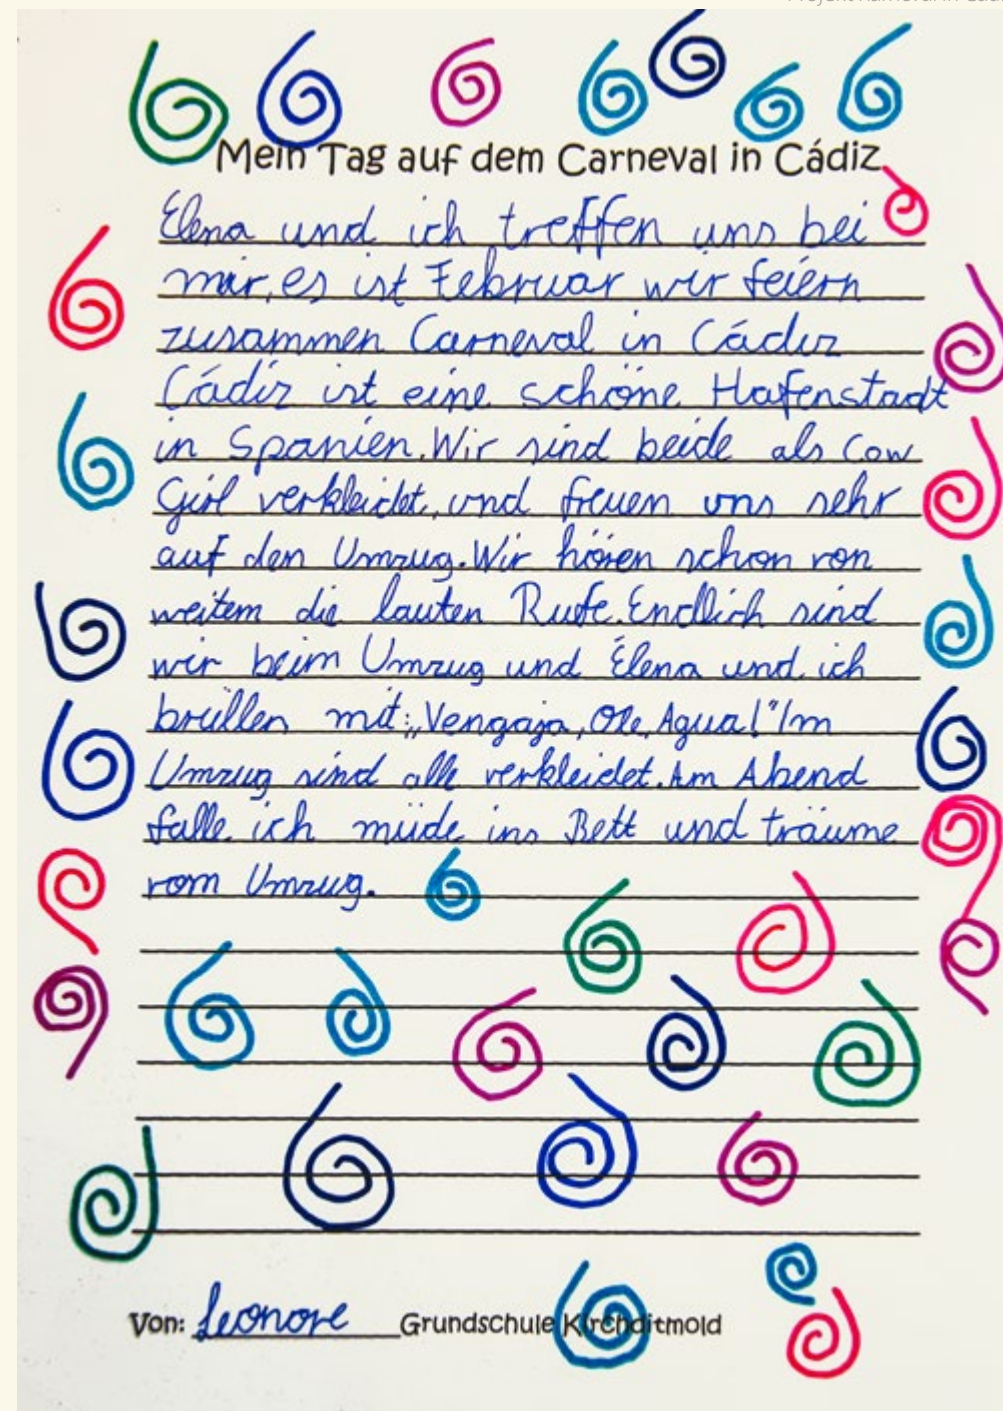 Mein Tag auf dem Carneval in Cádiz
Elena und ich treffen uns bei
mir, es ist Februar wir feiern
zusammen Carneval in Cádiz
Cádiz ist eine schöne Hafenstadt
in Spanien. Wir sind beide als Cow
Girl verkleidet, und freuen uns sehr
auf den Umzug. Wir hören schon von
weitem die lauten Rufe. Endlich sind
wir beim Umzug und Élena und ich
brüllen mit: „Vengaja, Ole, Agua!" Im
Umzug sind alle verkleidet. Am Abend
falle ich müde ins Bett und träume
vom Umzug.
Von: Leonore Grundschule Kirchditmold